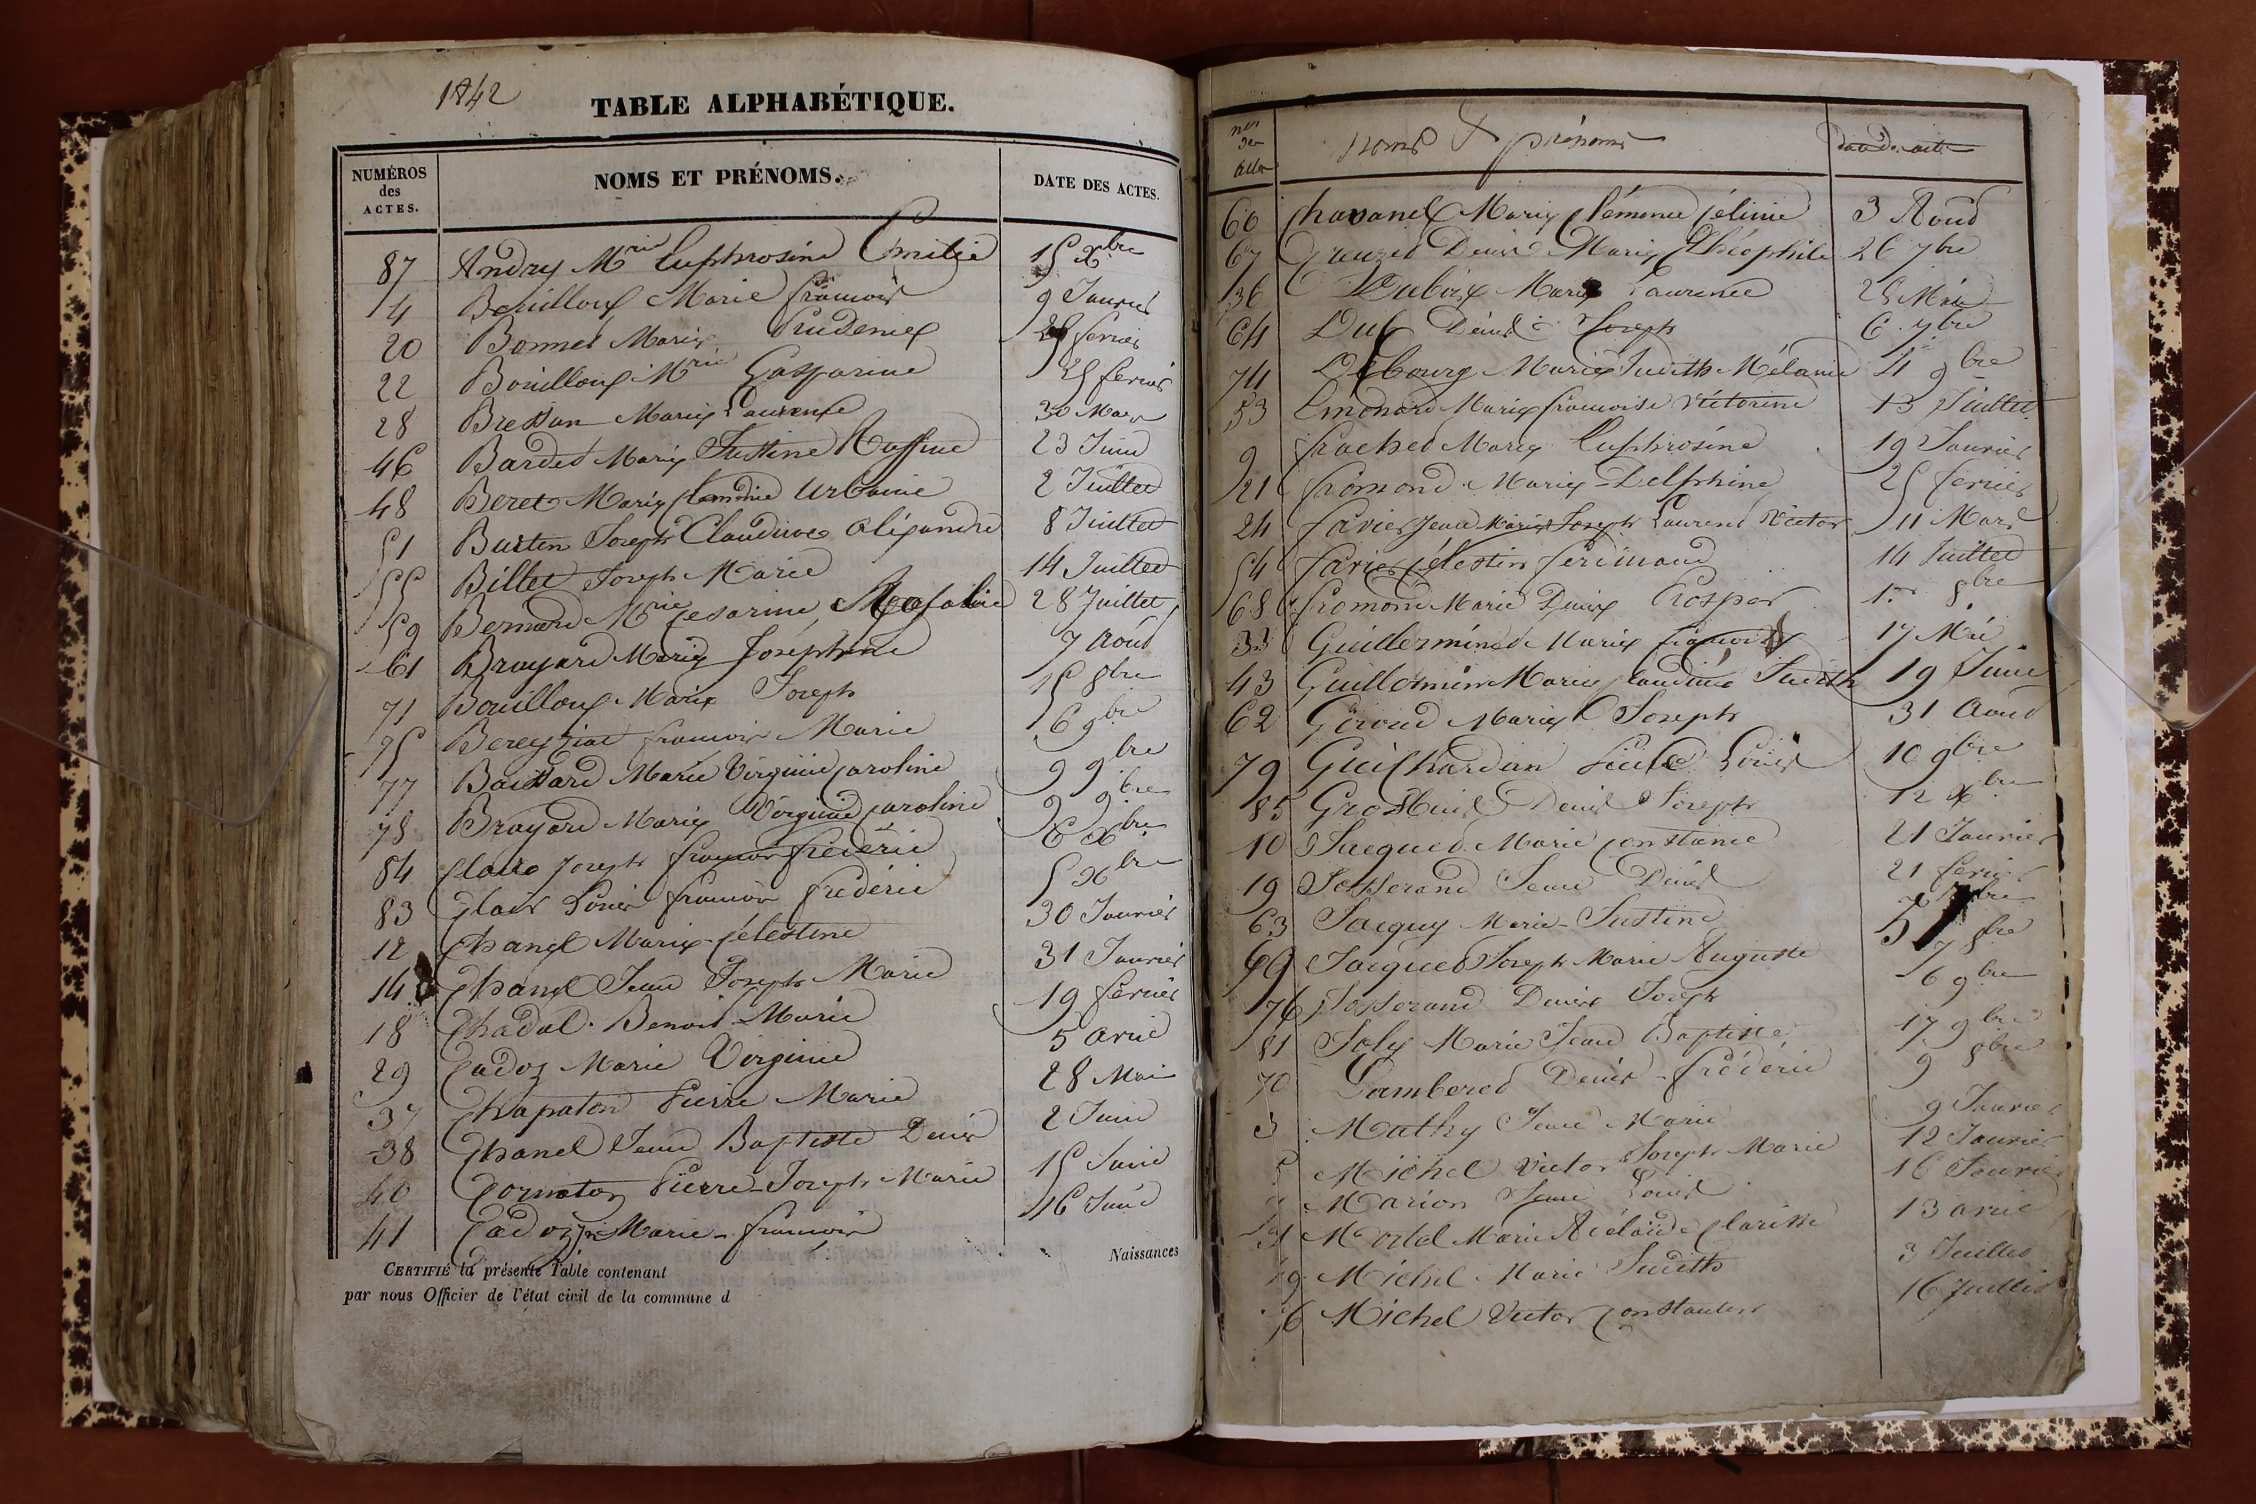 1842
TABLE ALPHABÉTIQUE.
NUMÉROS des ACTES. NOMS ET PRÉNOMS. DATE DES ACTES.
87 Andry Mrie Euphrosine Emilie 15 Xbre
4 Bouilloux Marie francois 9 Janvier
20 Bonnet Marie Prudence fevrier
22 Bouilloux Mrie Gasparine 25 fevrier
28 Bressan Marie Laurence 30 Mars
46 Bardet Marie Justine Ruffine 23 Juin
48 Beret Marie Claudine Urbanie 2 Juillet
51 Burtin Joseph Claudius aléxandre 8 Juillet
55 Billet Joseph Marie 14 Juillet
59 Bernard Mrie Cesarine 28 Juillet
61 Brayard Marie Joséphine 7 Août
71 Bouilloux Marie Joseph 15 8bre
75 Bereyziat francois Marie 6 9bre
77 Baissard Marie Virginie Caroline 9 9bre
78 Brayard Marie Virginie Caroline 9 9bre
84 Joseph francois frédéric 6 Xbre
83 Clair Louis francois frédéric 5 Xbre
12 Chanel Marie Célestine 30 Janvier
14 Chanel Jean Joseph Marie 31 Janvier
18 Chadal Benoit Marie 19 fevrier
29 Cadoz Marie Virginie 5 avril
37 Chapaton Pierre Marie 28 Mai
38 Chanel Jean Baptiste Denis 2 Juin
40 Cormaton Pierre Joseph Marie 15 Juin
41 Marie francois 16 Juin
CERTIFIÉ la présente Table contenant Naissances
par nous Officier de l'état civil de la commune d
nos des actes noms & prénoms date des actes
60 Chavanel Marie Clémence Céline 3 Aout
67 Denise Marie Théophile 26 7bre
36 Dubois Marie Laurence 25 Mai
64 Dub Denis Joseph 6 7bre
74 Debourg Marie Judith Mélanie 4 9bre
53 Emonard Marie francoise Victorine 13 Juillet
9 frachet Marie Euphrosine 19 Janvier
21 fromond Marie Delphine 25 fevrier
24 favier Jean Marie Joseph Laurent Victor 11 Mars
54 favier Célestin ferdinand 14 Juillet
68 fromond Marie Denis Prosper 1er 8bre
33 Guillermin Marie 17 Mai
43 Guillermin Marie Claudine Judith 19 Juin
62 Giroud Marie Joseph 31 Aout
79 Guichardan Louis 10 9bre
85 Denis Joseph 12 Xbre
10 Jacquet Marie Constance 21 Janvier
19 Josserand Jean Denis 21 fevrier
63 Jacquy Marie Justine 5
69 Jacquet Joseph Marie Auguste 7 8bre
76 Josserand Denise Joseph 6 9bre
81 Joly Marie Jean Baptiste 17 9bre
70 Lamberet Denis frédéric 9 8bre
3 Mathy Jean Marie 9 Janvier
5 Michel Victor Joseph Marie 12 Janvier
Marion Jean Louis 16 Janvier
Mortel Marie Adélaïde Clarisse 13 avril
49 Michel Marie Judith 3 Juillet
56 Michel Victor Constantin 16 Juillet